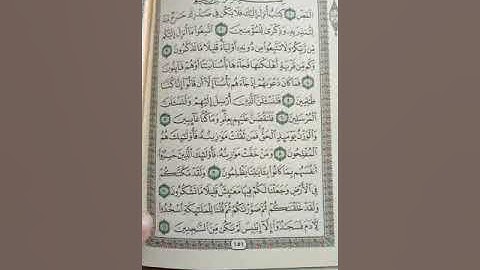 الٓمٓصٓ ١ كِتَٰبٌ أُنزِلَ إِلَيْكَ فَلَا يَكُن فِي صَدْرِكَ حَرَجٌ مِّنْهُ
لِتُنذِرَ بِهِۦ وَذِكْرَىٰ لِلْمُؤْمِنِينَ ٢ ٱتَّبِعُوا۟ مَآ أُنزِلَ إِلَيْكُم
مِّن رَّبِّكُمْ وَلَا تَتَّبِعُوا۟ مِن دُونِهِۦٓ أَوْلِيَآءَ قَلِيلًا مَّا تَذَكَّرُونَ ٣
وَكَم مِّن قَرْيَةٍ أَهْلَكْنَٰهَا فَجَآءَهَا بَأْسُنَا بَيَٰتًا أَوْ هُمْ قَآئِلُونَ
٤ فَمَا كَانَ دَعْوَىٰهُمْ إِذْ جَآءَهُم بَأْسُنَآ إِلَّآ أَن قَالُوٓا۟ إِنَّا كُنَّا
ظَٰلِمِينَ ٥ فَلَنَسْـَٔلَنَّ ٱلَّذِينَ أُرْسِلَ إِلَيْهِمْ وَلَنَسْـَٔلَنَّ
ٱلْمُرْسَلِينَ ٦ فَلَنَقُصَّنَّ عَلَيْهِم بِعِلْمٍ وَمَا كُنَّا غَآئِبِينَ ٧
وَٱلْوَزْنُ يَوْمَئِذٍ ٱلْحَقُّ فَمَن ثَقُلَتْ مَوَٰزِينُهُۥ فَأُو۟لَٰٓئِكَ هُمُ
ٱلْمُفْلِحُونَ ٨ وَمَنْ خَفَّتْ مَوَٰزِينُهُۥ فَأُو۟لَٰٓئِكَ ٱلَّذِينَ خَسِرُوٓا۟
أَنفُسَهُم بِمَا كَانُوا۟ بِـَٔايَٰتِنَا يَظْلِمُونَ ٩ وَلَقَدْ مَكَّنَّٰكُمْ
فِي ٱلْأَرْضِ وَجَعَلْنَا لَكُمْ فِيهَا مَعَٰيِشَ قَلِيلًا مَّا تَشْكُرُونَ ١٠
وَلَقَدْ خَلَقْنَٰكُمْ ثُمَّ صَوَّرْنَٰكُمْ ثُمَّ قُلْنَا لِلْمَلَٰٓئِكَةِ ٱسْجُدُوا۟
لِـَٔادَمَ فَسَجَدُوٓا۟ إِلَّآ إِبْلِيسَ لَمْ يَكُن مِّنَ ٱلسَّٰجِدِينَ ١١
١٥١